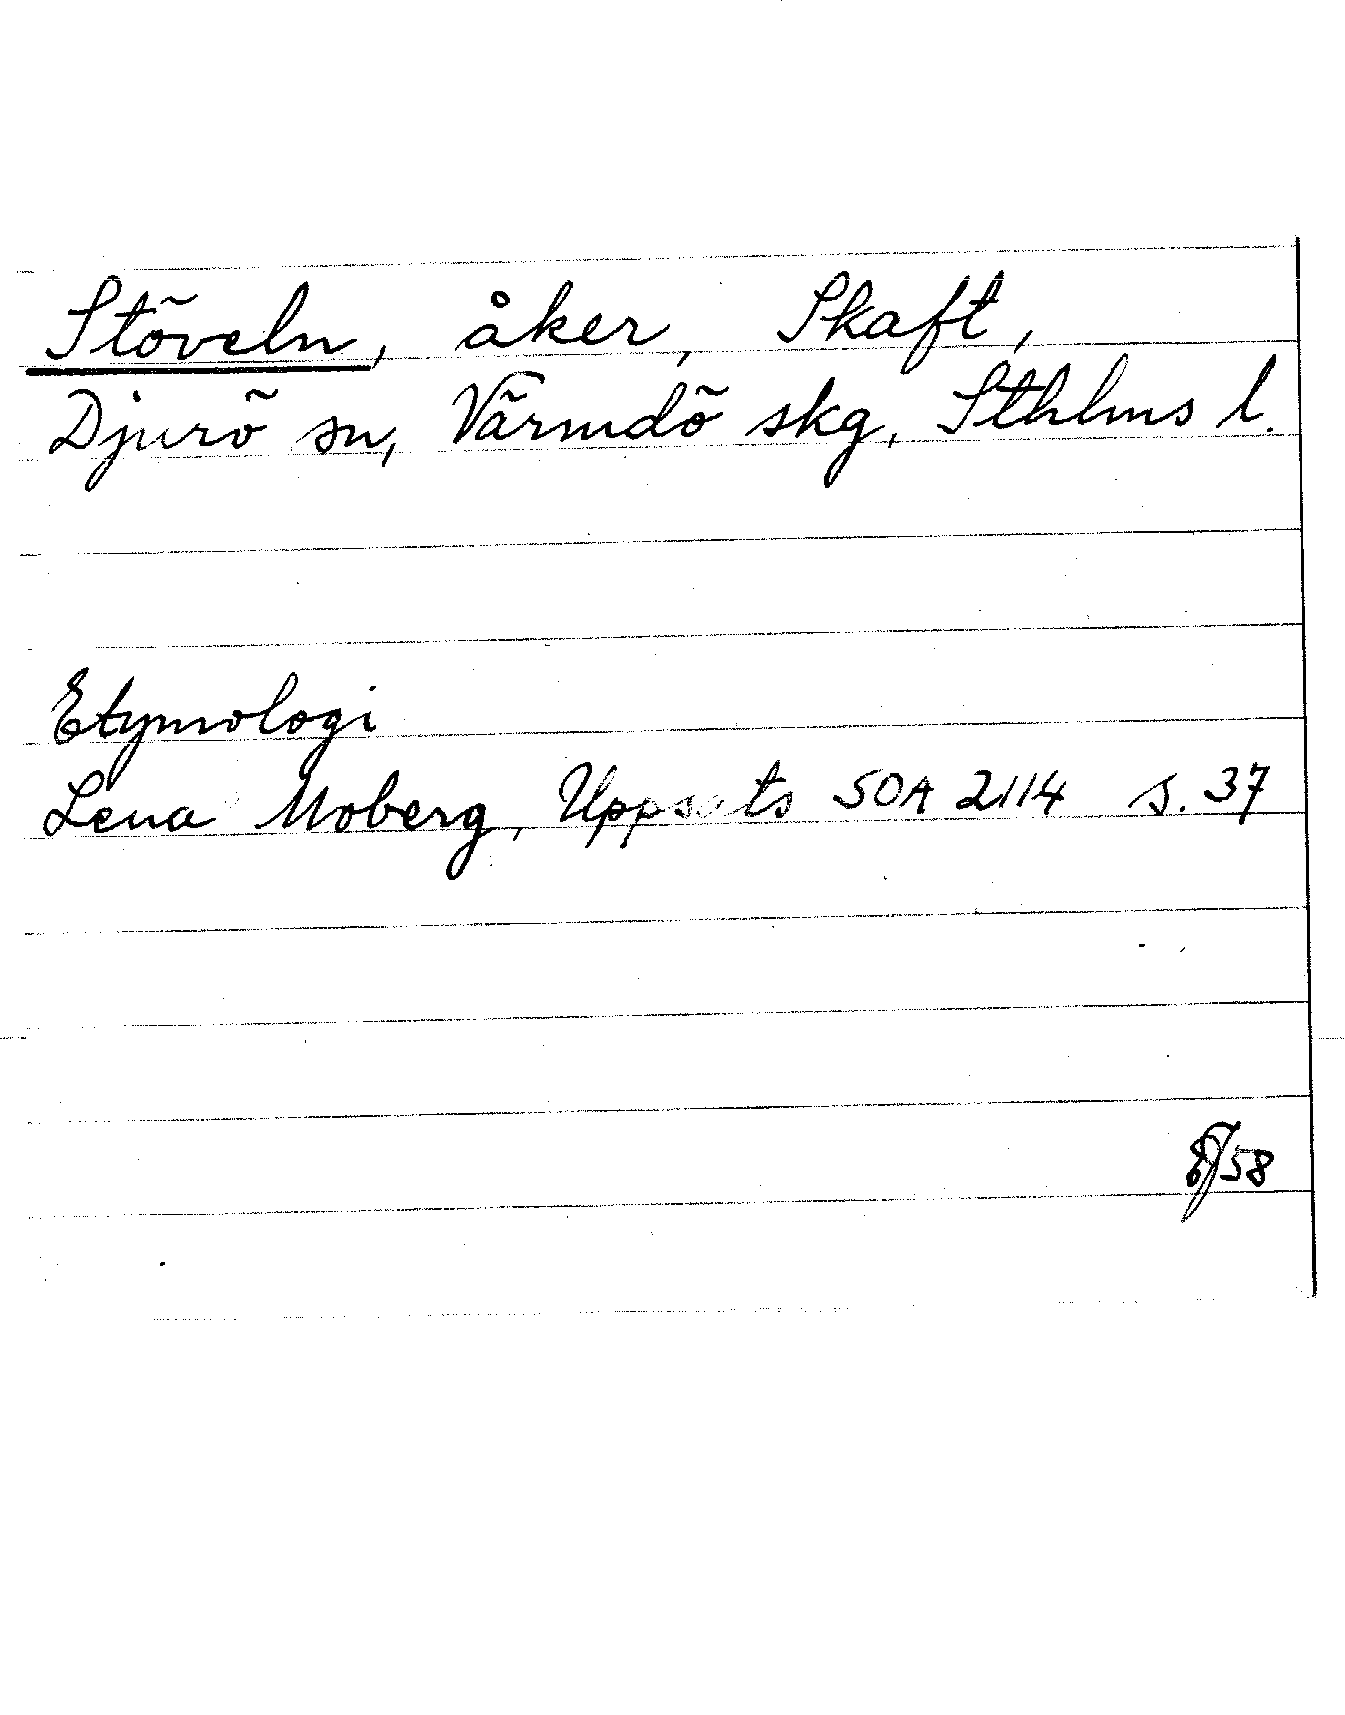 Stöveln, åker, Skaft,
Djurö sn, Värmdö skg, Sthlms l.
Etymologi
Lena Moberg, Uppsats SOA 2114 s. 37